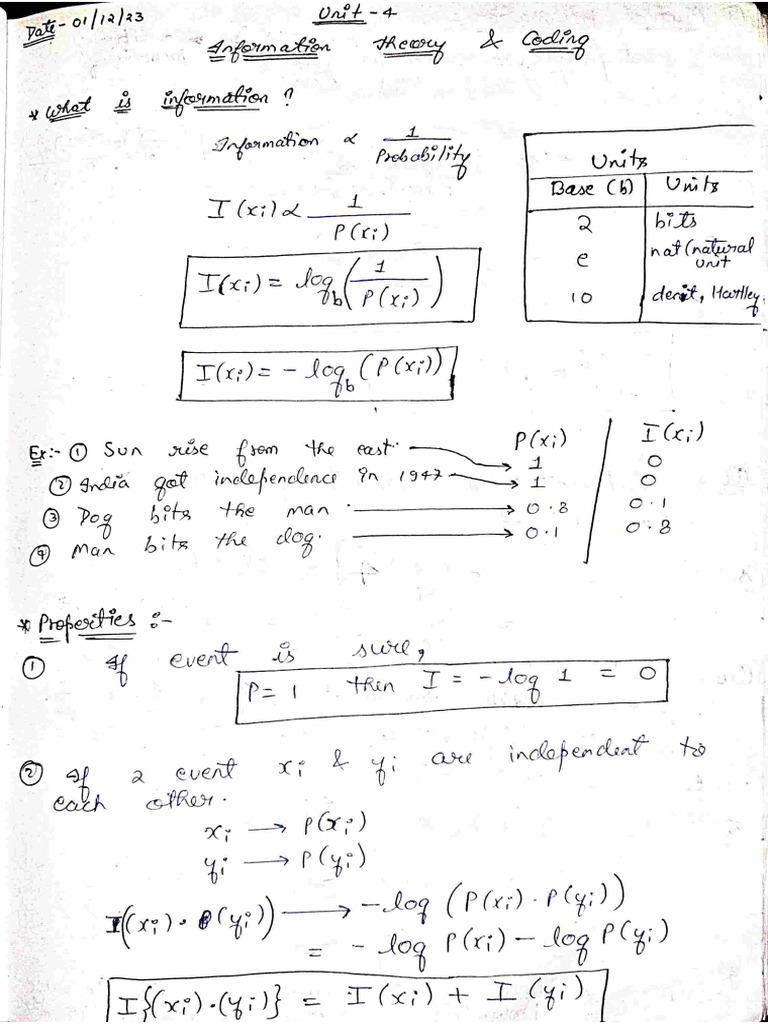 Date - 01/12/23
Unit - 4
Information Theory & Coding
* What is information?
Information ∝ 1/Probability
I(xi) ∝ 1/P(xi)
I(xi) = log_b (1/P(xi))
I(xi) = - log_b (P(xi))
Units
Base (b) | Units
2 | bits
e | nat (natural unit
10 | decit, Hartley.
P(xi) / I(xi)
Ex:- ① Sun rise from the east. → 1 / 0
② India got independence in 1947 → 1 / 0
③ Dog bits the man. → 0.8 / 0.1
④ Man bits the dog. → 0.1 / 0.8
* Properties :-
① If event is sure,
P = 1 then I = - log 1 = 0
② If 2 event xi & yi are independent to
each other.
xi → P(xi)
yi → P(yi)
I((xi)·(yi)) → - log (P(xi) · P(yi))
= - log P(xi) - log P(yi)
I{(xi)·(yi)} = I(xi) + I(yi)